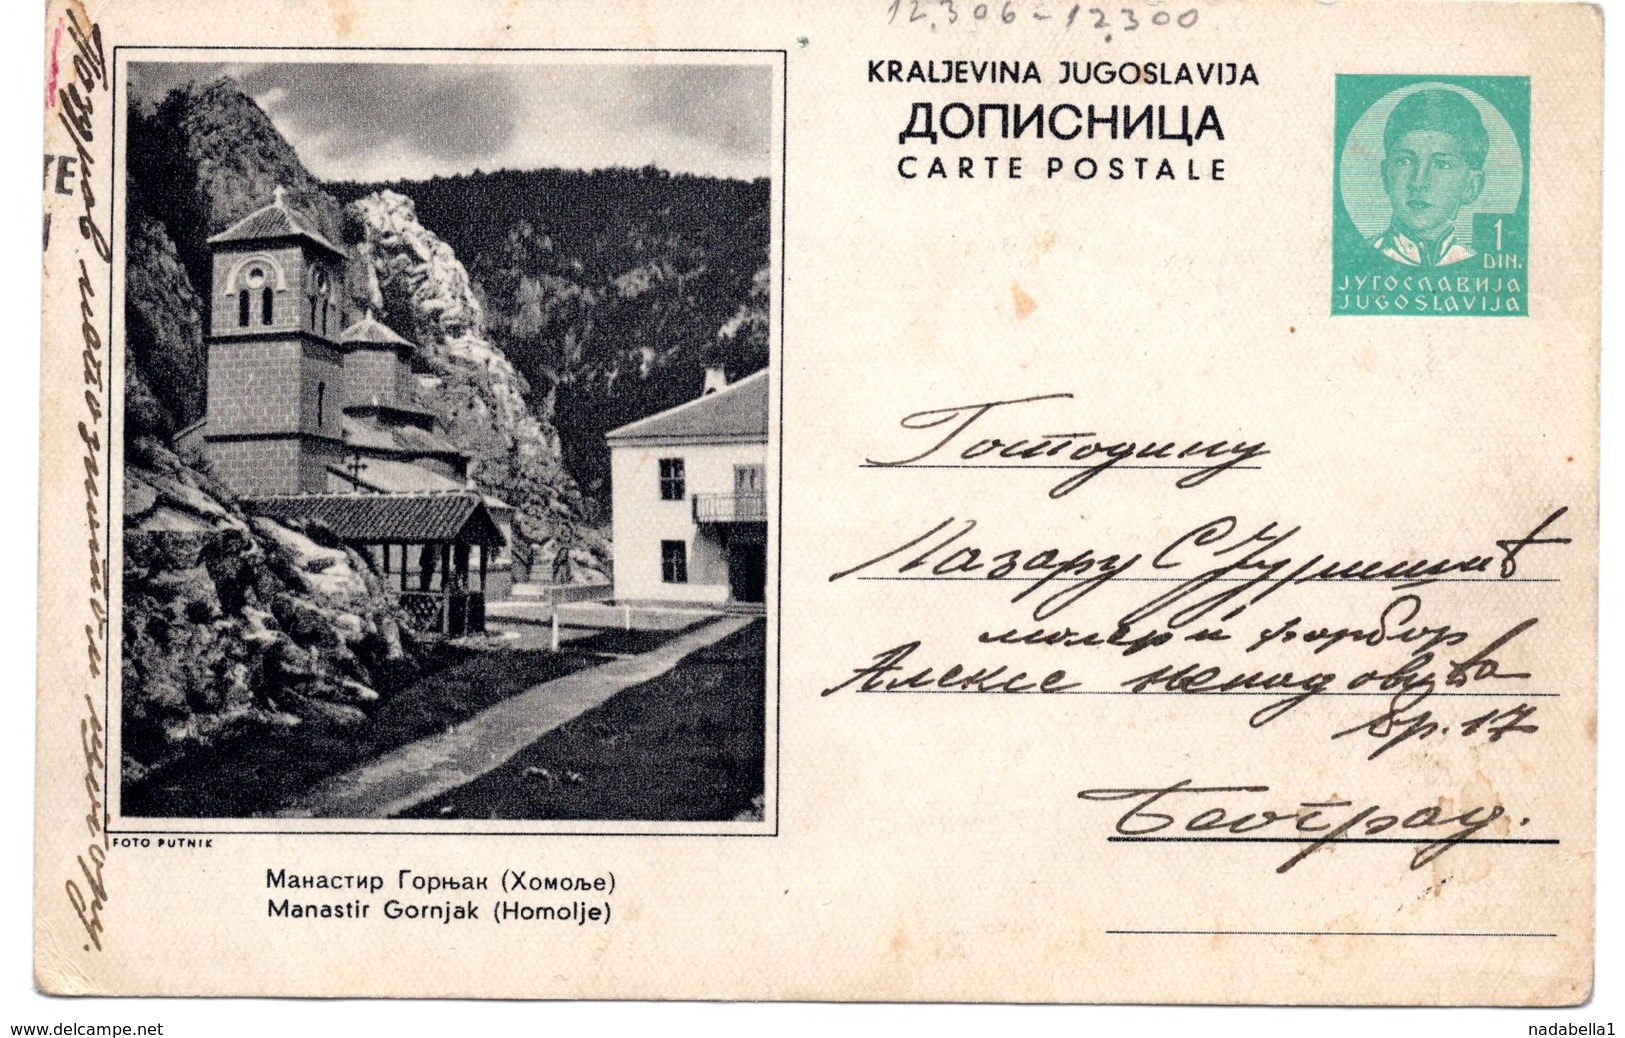 12.306-12.300
KRALJEVINA JUGOSLAVIJA
ДОПИСНИЦА
CARTE POSTALE
1
DIN.
ЈУГОСЛАВИЈА
JUGOSLAVIJA
TE
Господину
Лазару С
молер и фарбар
Алексе Ненадовића
бр. 17
Београд.
FOTO PUTNIK
Манастир Горњак (Хомоље)
Manastir Gornjak (Homolje)
Поздрав
www.delcampe.net
nadabella1